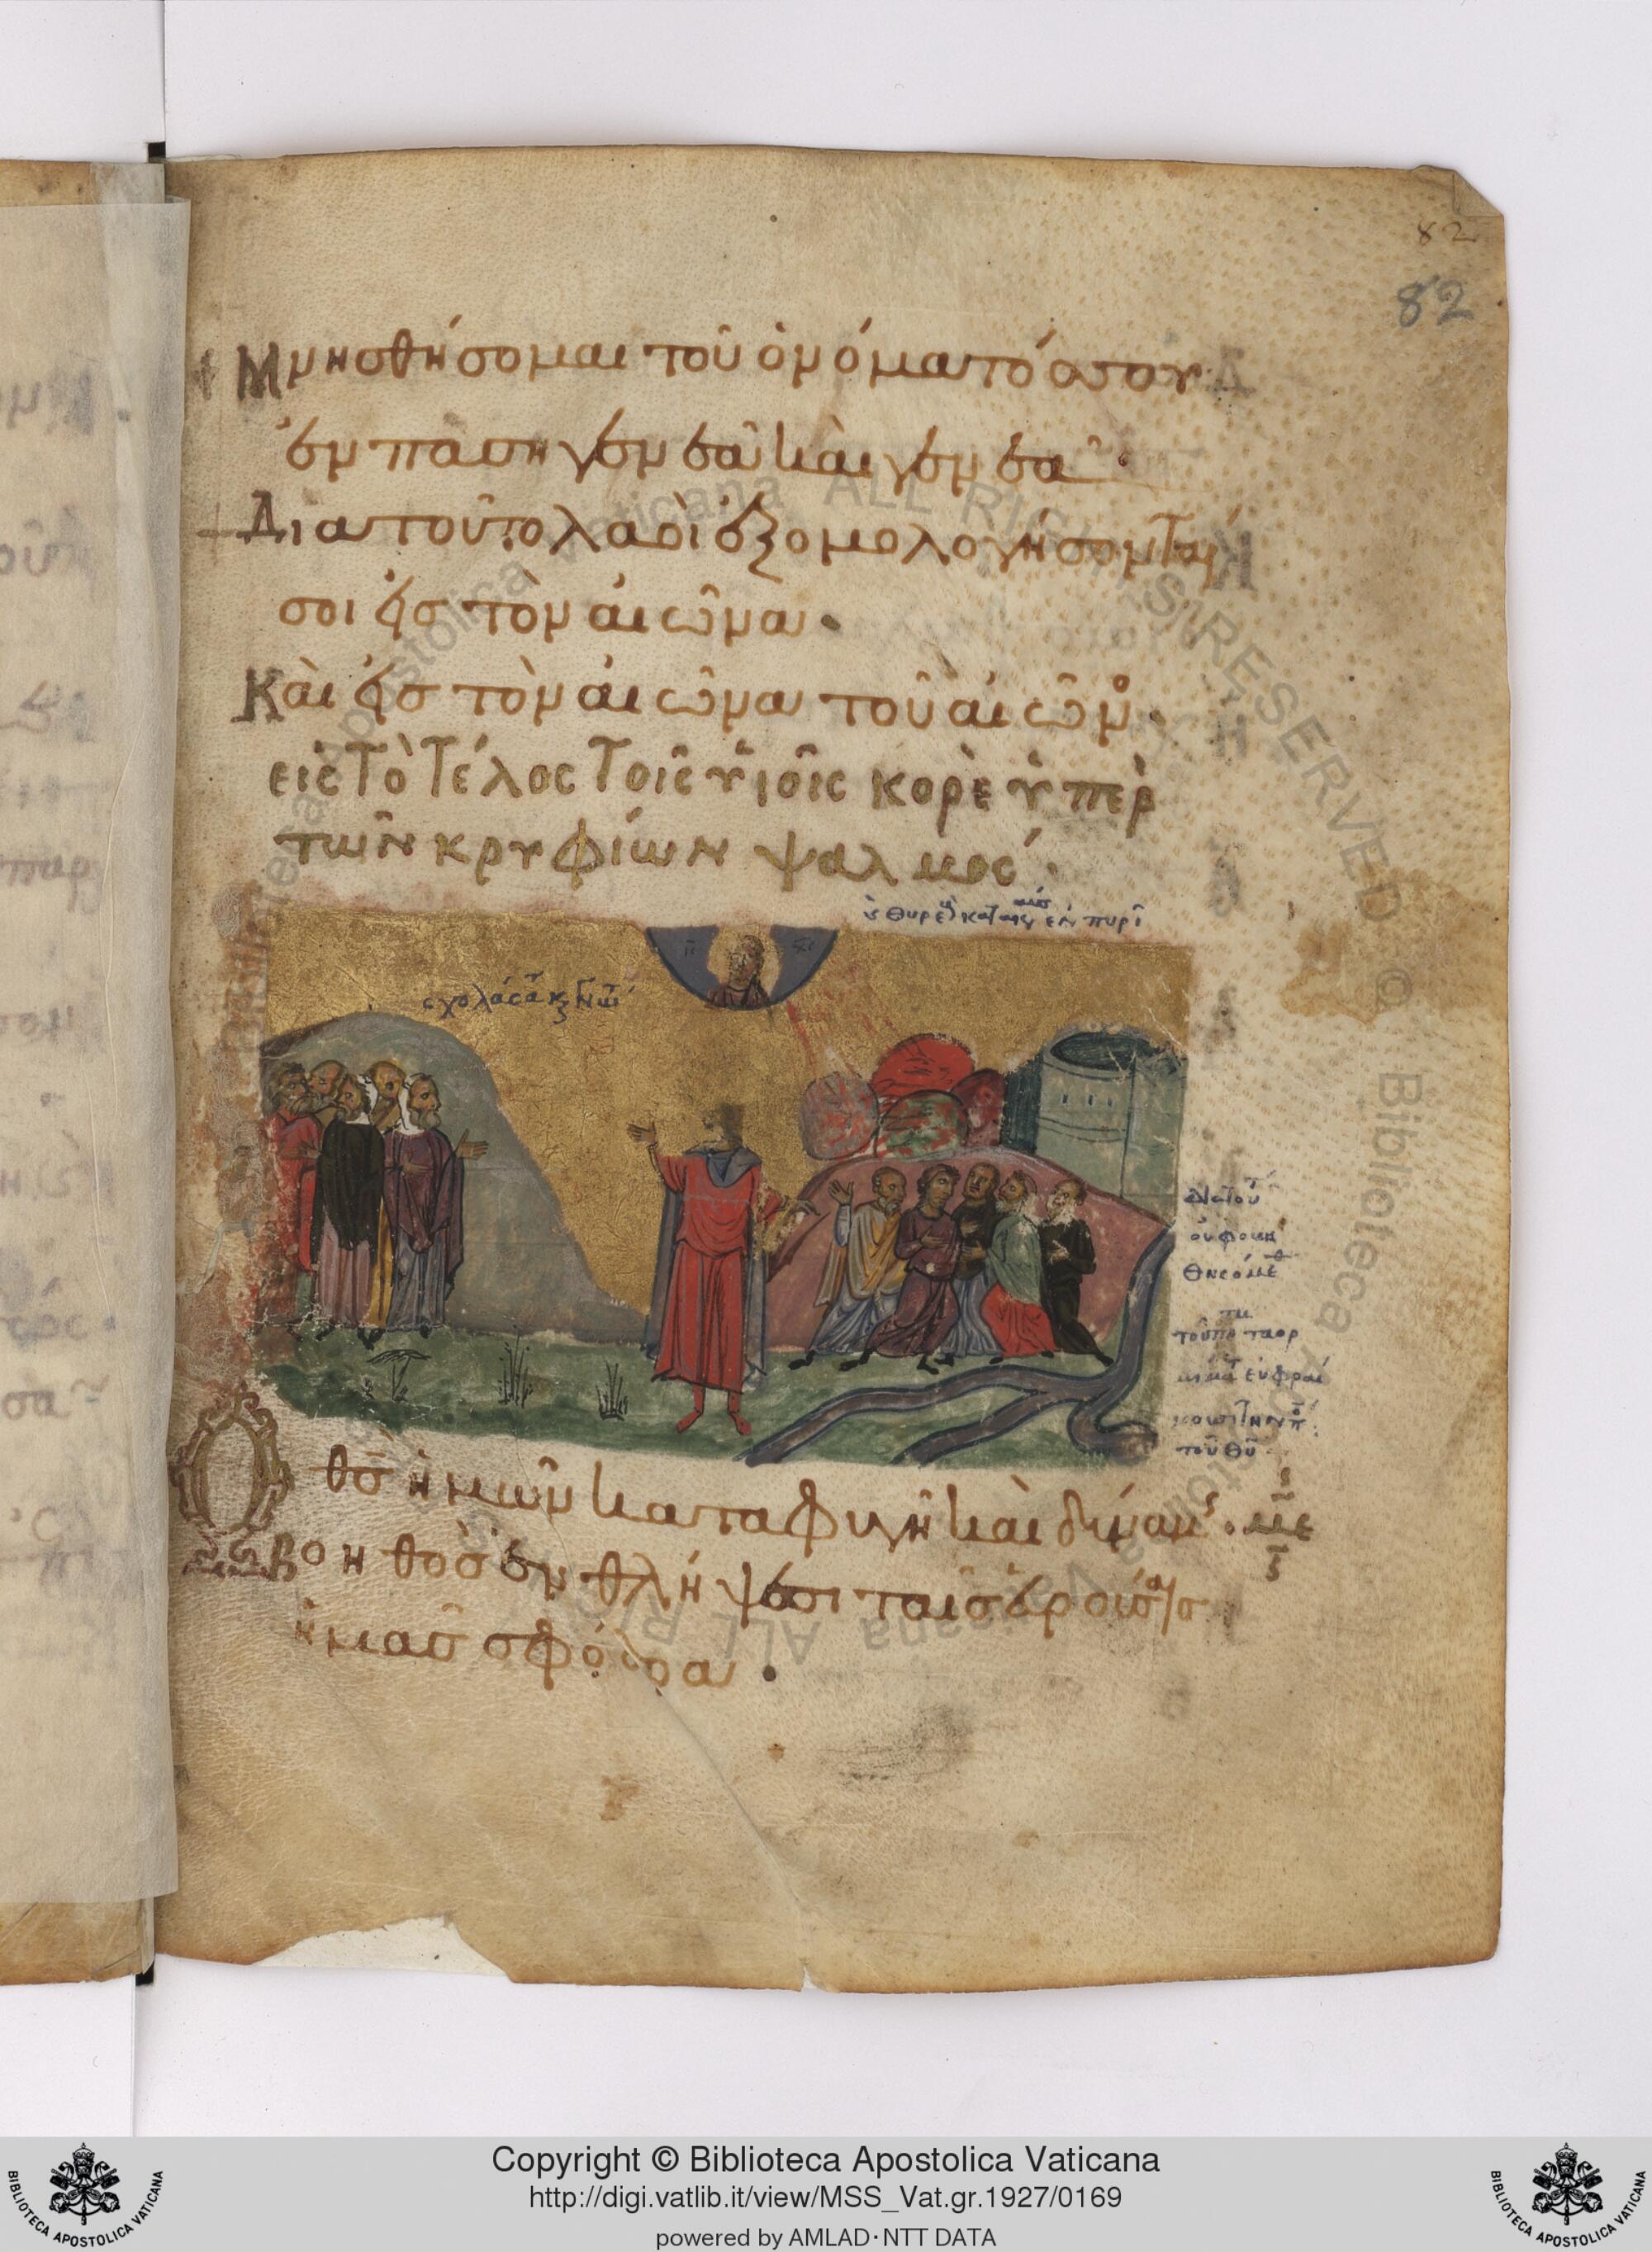 82
82
Μνησθήσομαι τοῦ ὀνόματός σου
ἐν πάση γενεᾶ καὶ γενεᾶ
Διατοῦτο λαοὶ ἐξομολογήσονται
σοι εἰς τὸν αἰῶνα·
Καὶ εἰς τὸν αἰῶνα τοῦ αἰῶνο·
εἰς τὸ τέλος τοῖς υἱοῖς κορὲ ὑπὲρ
τῶν κρυφίων ψαλμος·
κατακαύσ ἐν πυρί
σχολάσατ
Διατοῦ
οὐ φοβη
θησόμεθ
τοῦ ποταμ
τὴν π
τοῦ θῦ
Ὁ θς ἡμῶν καταφυγὴ καὶ δύναμις· με
βοηθὸς ἐν θλήψεσι ταῖς εὑρούσαις
ἡμᾶς σφόδρα·
Copyright © Biblioteca Apostolica Vaticana
http://digi.vatlib.it/view/MSS_Vat.gr.1927/0169
powered by AMLAD·NTT DATA
BIBLIOTECA APOSTOLICA VATICANA
BIBLIOTECA APOSTOLICA VATICANA